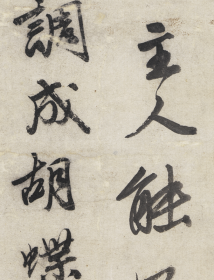 主人能
調成胡蝶